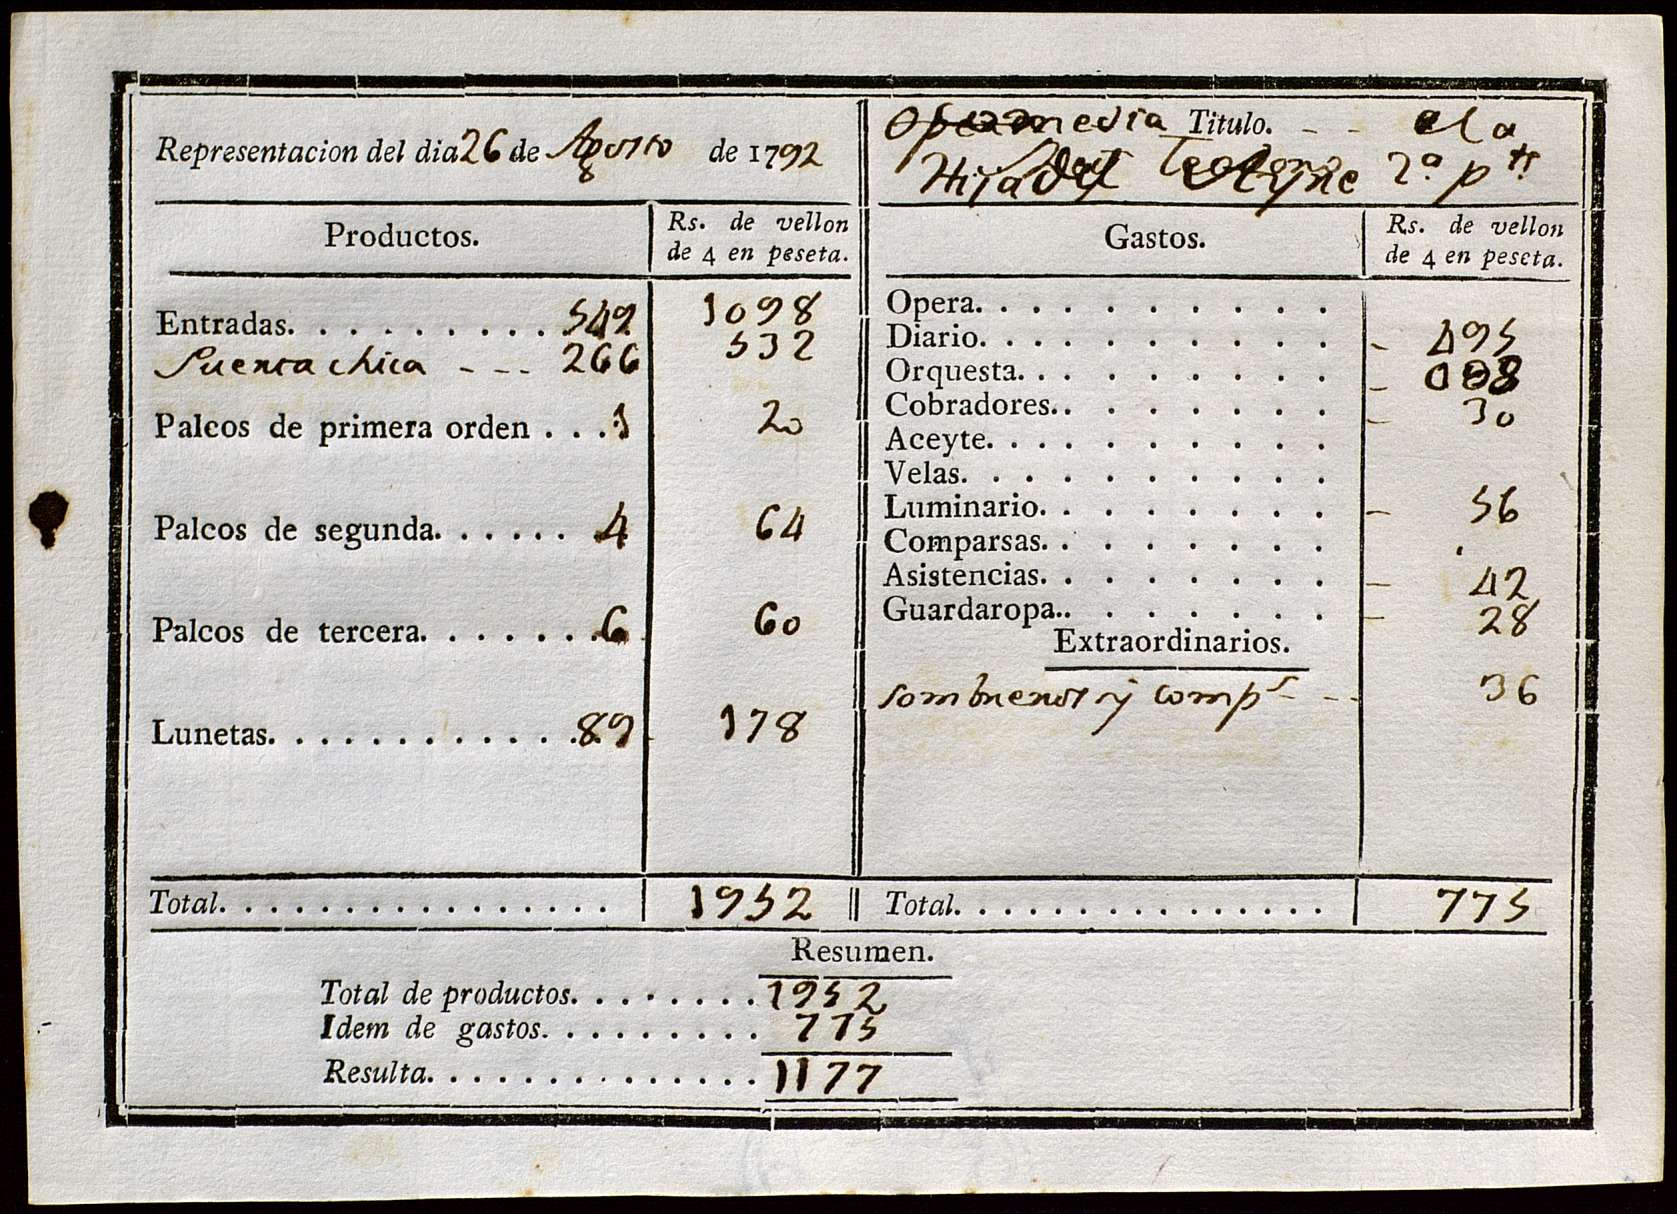 Representacion del dia 26 de Agosto de 1792
Comedia Titulo. - - a la
Hija del 2.ª p.te
Productos.
Rs. de vellon
de 4 en peseta.
Entradas. . . . . . . . . . 549 1098
Puerta chica - - - 266 532
Palcos de primera orden . . . 1 20
Palcos de segunda. . . . . . . 4 64
Palcos de tercera. . . . . . . 6 60
Lunetas. . . . . . . . . . . . . 89 178
Total. . . . . . . . . . . . . . . . 1952
Gastos.
Rs. de vellon
de 4 en peseta.
Opera. . . . . . . . . .
Diario. . . . . . . . . . - 495
Orquesta. . . . . . . . . - 088
Cobradores.. . . . . . . - 30
Aceyte. . . . . . . . . .
Velas. . . . . . . . . .
Luminario. . . . . . . . - 56
Comparsas. . . . . . . .
Asistencias. . . . . . . . - 42
Guardaropa.. . . . . . . - 28
Extraordinarios.
sombreros y comp.s - - - 36
Total. . . . . . . . . . . . . . . 775
Resumen.
Total de productos. . . . . . . . 1952
Idem de gastos. . . . . . . . . 775
Resulta. . . . . . . . . . . . . . 1177